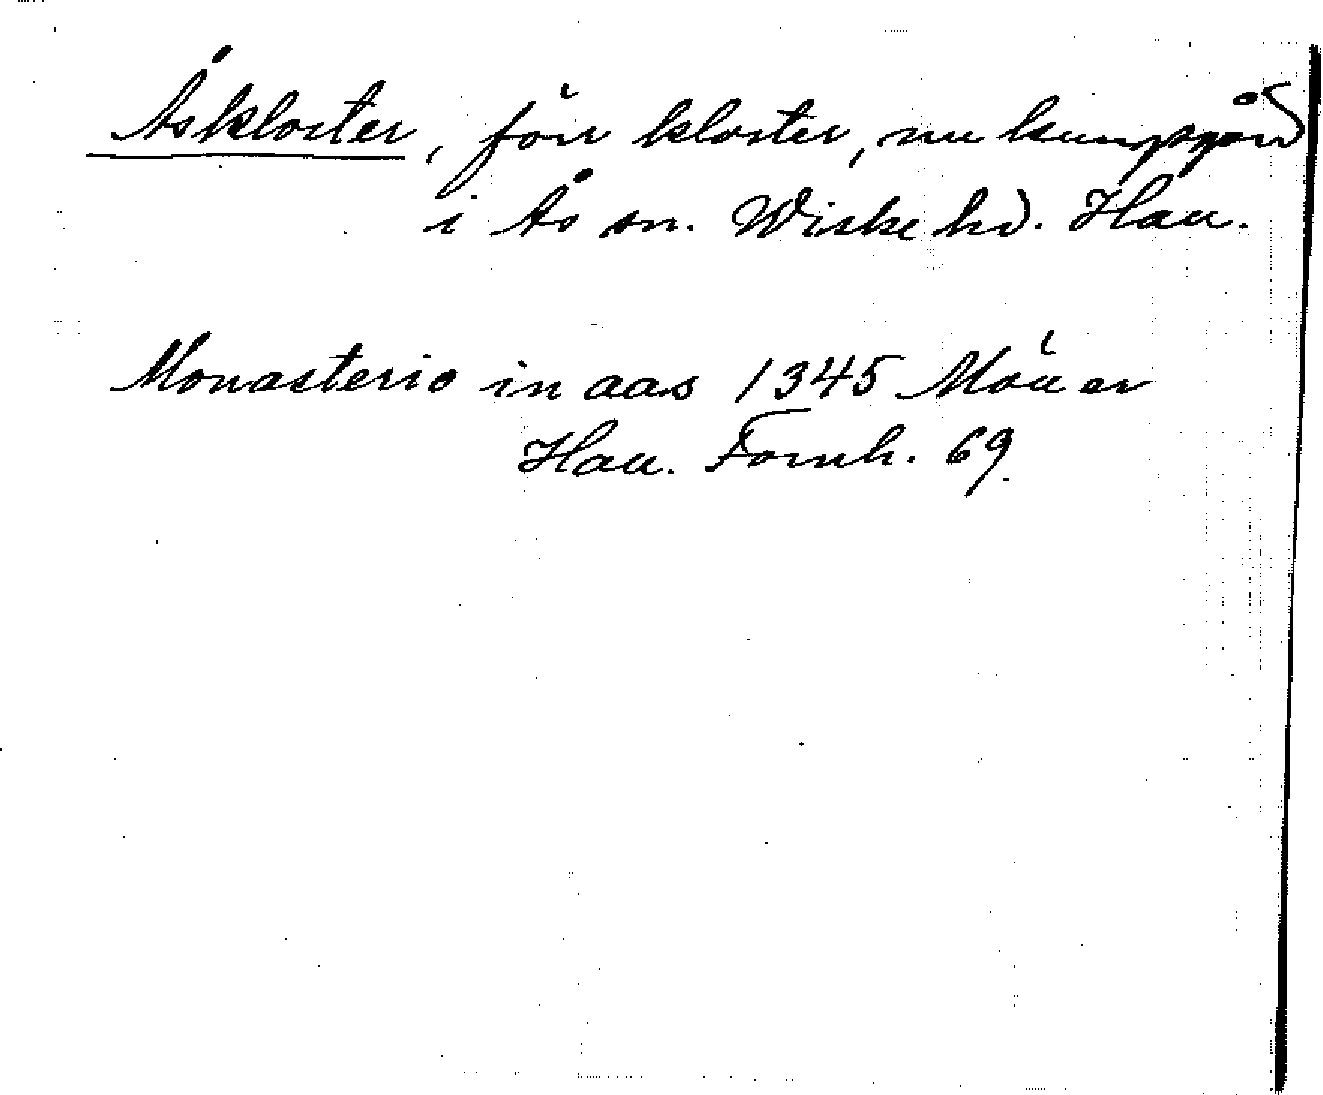 Åskloster, förr kloster, nu kungsgård
i Ås sn. Wiske hd. Hall.
Monasterio in aas 1345 Möller
Hall. Fornh. 69.